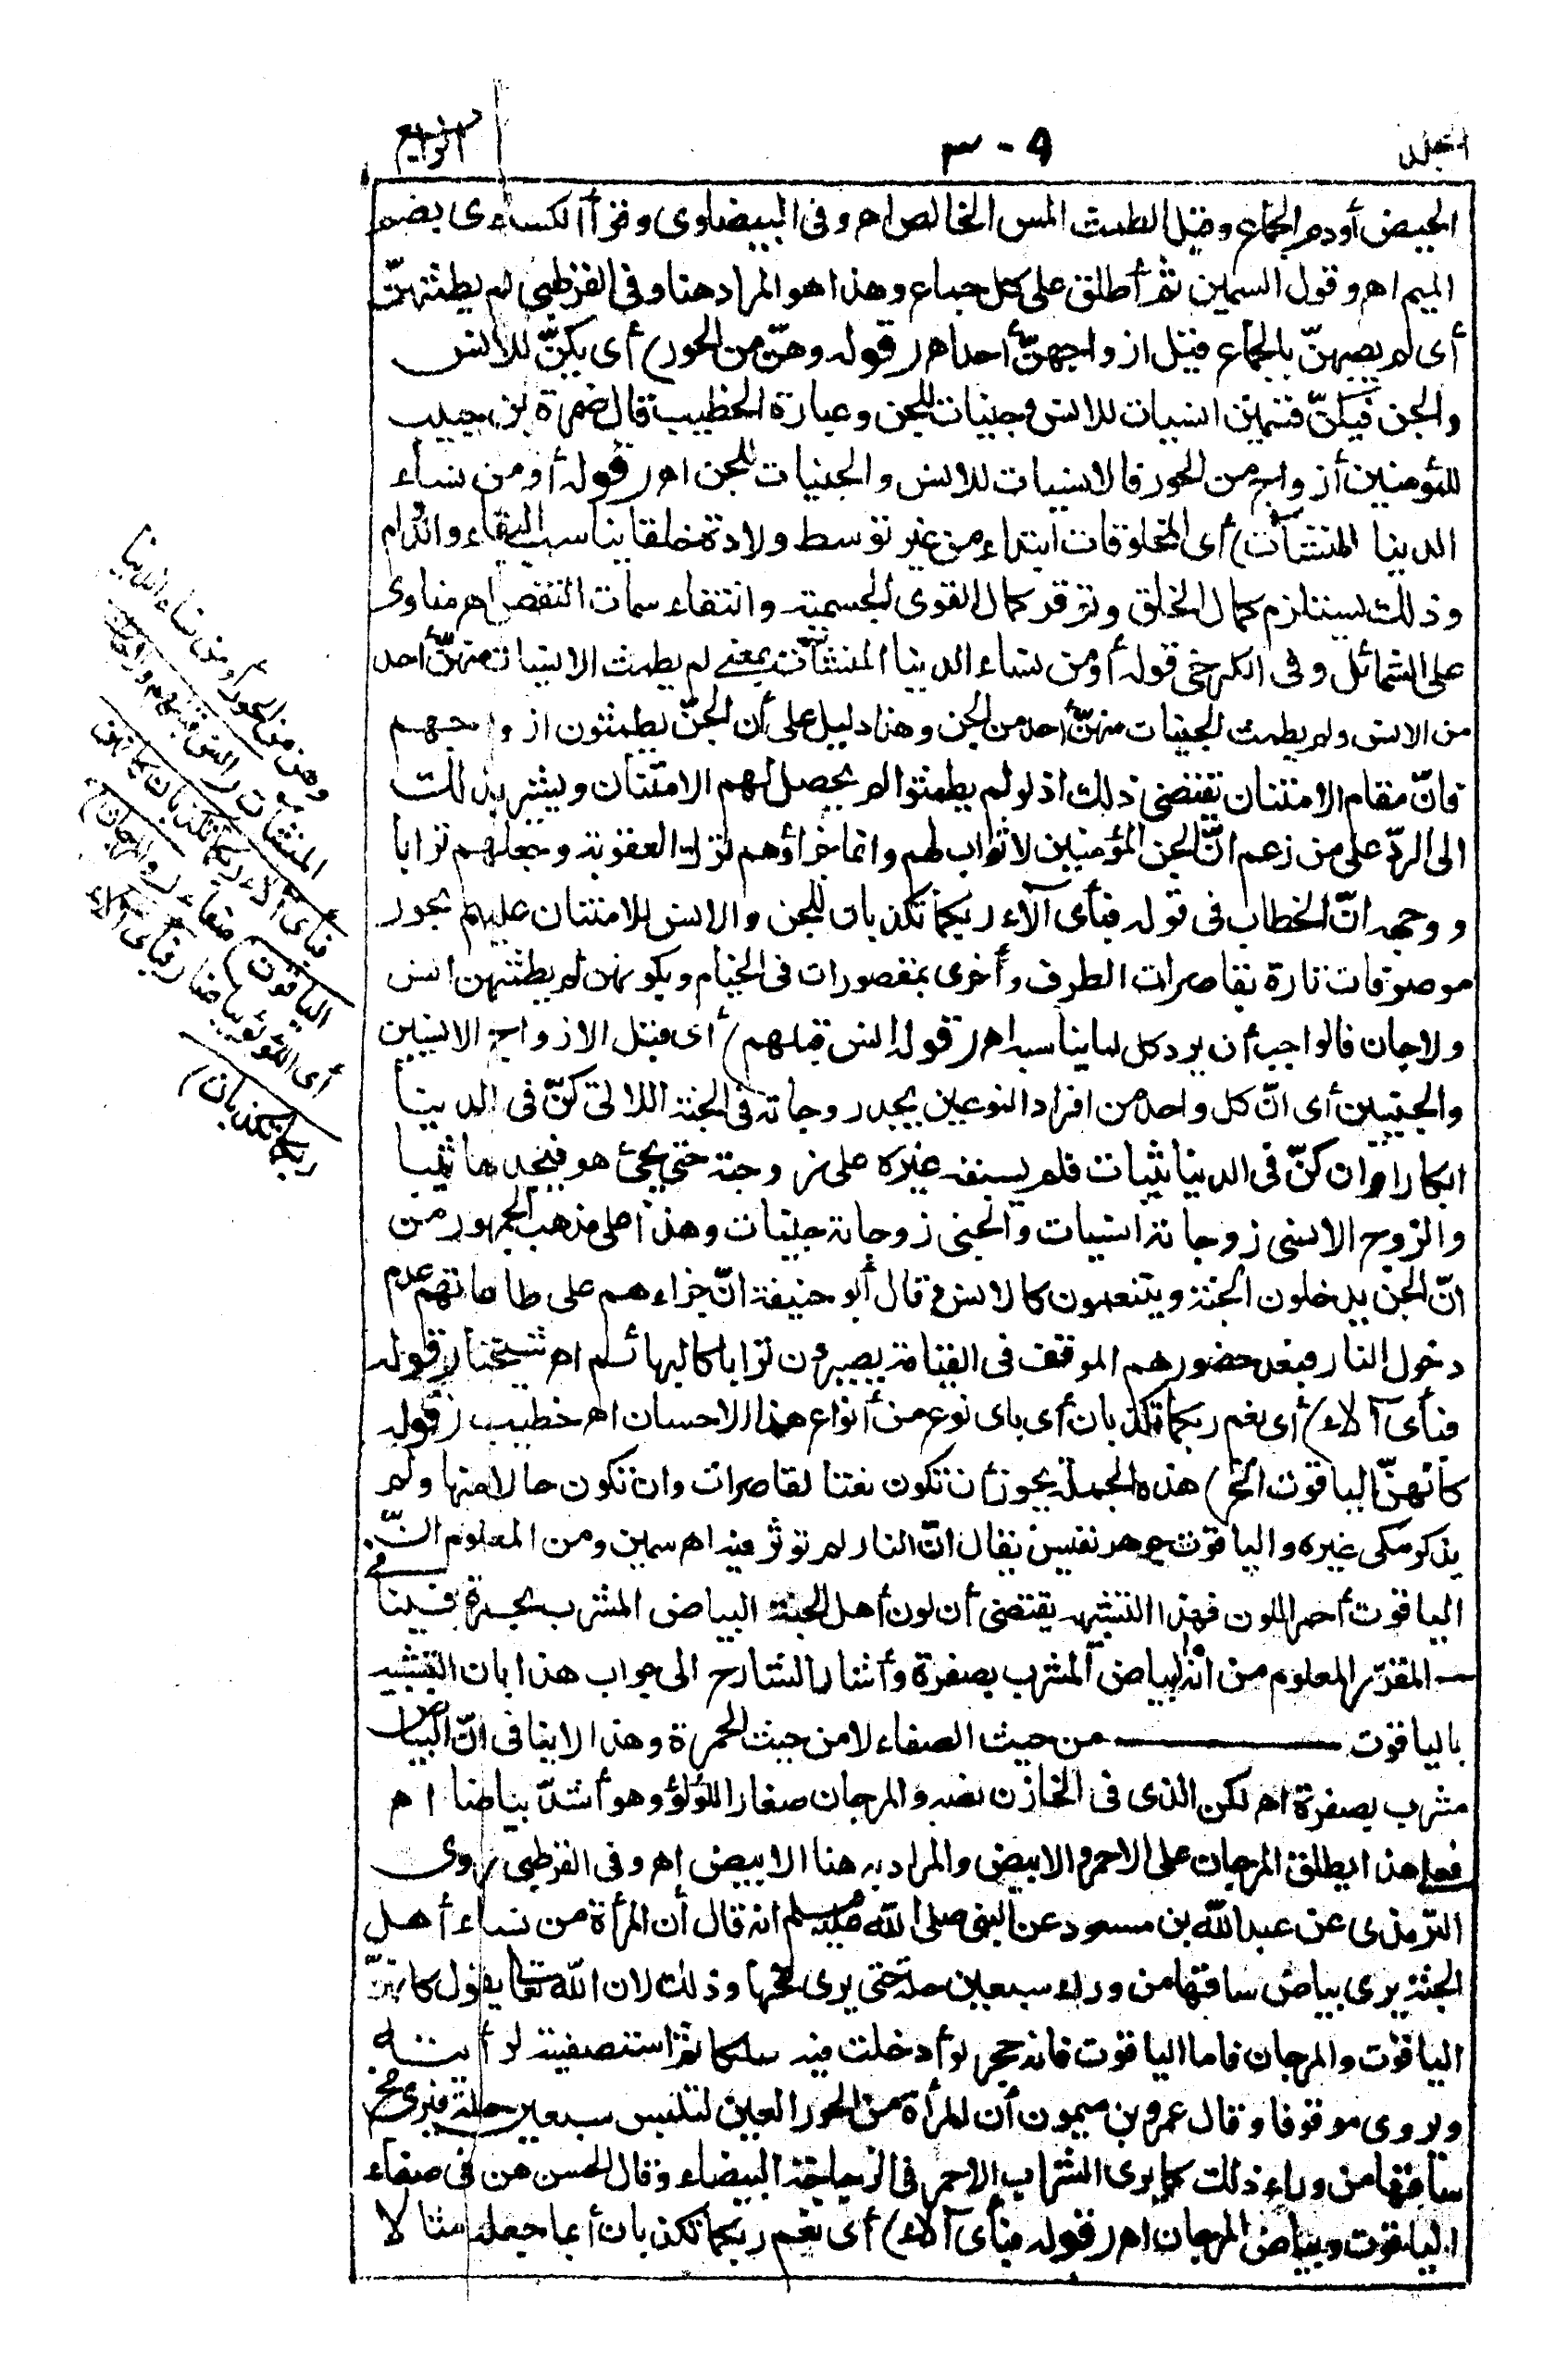 الجمل
٣٠٩
الرابع
الحيض أو دم الجماع وقيل الطمث المس الخالص اهـ وفى البيضاوى وقرأ الكساءى بضم
الميم اهـ وقول السمين ثم أطلق على كل جماع وهذا هو المراد هنا وفى القرطبى لم يطمثهنّ
أى لم يصبهنّ بالجماع قبل ازواجهنّ أحد اهـ (قوله وهنّ من الحور) أى يكنّ للانس
والجن فيكنّ قسمين انسيات للانس وجنيات للجن وعبارة الخطيب قال ضمرة بن حبيب
للمؤمنين أزواج من الحور فالانسيات للانس والجنيات للجن اهـ (قوله أو من نساء
الدنيا المنشآت) أى المخلوقات ابتداء من غير توسط ولادة خلقا يناسب البقاء والدوام
وذلك يستلزم كمال الخلق وتوفر كمال القوى الجسمية وانتفاء سمات النقص اهـ مناوى
على الشمائل وفى الكرخى قوله أو من نساء الدنيا المنشآت بمعنى لم يطمث الانسيات منهنّ أحد
من الانس ولم يطمث الجنيات منهنّ أحد من الجن وهذا دليل على أن الجنّ يطمثون ازواجهم
فانّ مقام الامتنان يقتضى ذلك اذ لو لم يطمثوا لم يحصل لهم الامتنان ويشير بذلك
الى الردّ على من زعم انّ الجن المؤمنين لا ثواب لهم وانما جزاؤهم ترك العقوبة وجعلهم ترابا
ووجهه انّ الخطاب فى قوله فبأى آلاء ربكما تكذبان للجن والانس للامتنان عليهم بحور
موصوفات تارة بقاصرات الطرف وأخرى بمقصورات فى الخيام وبكونهن لم يطمثهن انس
ولا جان فالواجب أن يرد كل لما يناسبه اهـ (قوله انس قبلهم) أى قبل الازواج الانسيين
والجنيين أى انّ كل واحد من افراد النوعين يجد زوجاته فى الجنة اللاتى كنّ فى الدنيا
ابكارا وان كنّ فى الدنيا ثيبات فلم يسبقه غيره على زوجته حتى يجئ هو فيجدها ثيبا
والزوج الانسى زوجاته انسيات والجنى زوجاته جنيات وهذا على مذهب الجمهور من
انّ الجن يدخلون الجنة ويتنعمون كالانس وقال أبو حنيفة انّ جزاءهم على طاعاتهم عدم
دخول النار فبعد حضورهم الموقف فى القيامة يصيرون ترابا كالبهائم اهـ شيخنا (قوله
فبأى آلاء) أى نعم ربكما تكذبان أى باى نوع من أنواع هذا الاحسان اهـ خطيب (قوله
كأنهنّ الياقوت الخ) هذه الجملة يجوز أن تكون نعتا لقاصرات وان تكون حالا منها ولم
يذكر مكى غيره والياقوت جوهر نفيس يقال انّ النار لم تؤثر فيه اهـ سمين ومن المعلوم انّ
الياقوت أحمر اللون فهذا التشبيه يقتضى أن لون أهل الجنة البياض المشرب بحمرة فينافى
المقرّر المعلوم من انه البياض المشرب بصفرة وأشار الشارح الى جواب هذا بان التشبيه
بالياقوت من حيث الصفاء لا من حيث الحمرة وهذا لا ينافى انّ البياض
مشرب بصفرة اهـ لكن الذى فى الخازن نصه والمرجان صغار اللؤلؤ وهو أشدّ بياضا اهـ
فعلى هذا يطلق المرجان على الاحمر والابيض والمراد به هنا الابيض اهـ وفى القرطبى روى
الترمذى عن عبد الله بن مسعود عن النبى صلى الله عليه وسلم انه قال أن المرأة من نساء أهل
الجنة يرى بياض ساقها من وراء سبعين حلة حتى يرى مخها وذلك لان الله تعالى يقول كانهنّ
الياقوت والمرجان فاما الياقوت فانه حجر لو أدخلت فيه سلكا ثم استصفيته لرأيته
ويروى موقوفا وقال عمرو بن ميمون أن المرأة من الحور العين لتلبس سبعين حلة فيرى مخ
ساقها من وراء ذلك كما يرى الشراب الاحمر فى الزجاجة البيضاء وقال الحسن هن فى صفاء
الياقوت وبياض المرجان اهـ (قوله فبأى آلاء) أى نعم ربكما تكذبان أبما جعله مثالا
وهن من الحور أو من نساء الدنيا
المنشآت (انس قبلهم ولا جان
فبأى آلاء ربكما تكذبان كأنهن
الياقوت) صفاء (والمرجان)
أى اللؤلؤ بياضا (فبأى آلاء
ربكما تكذبان)